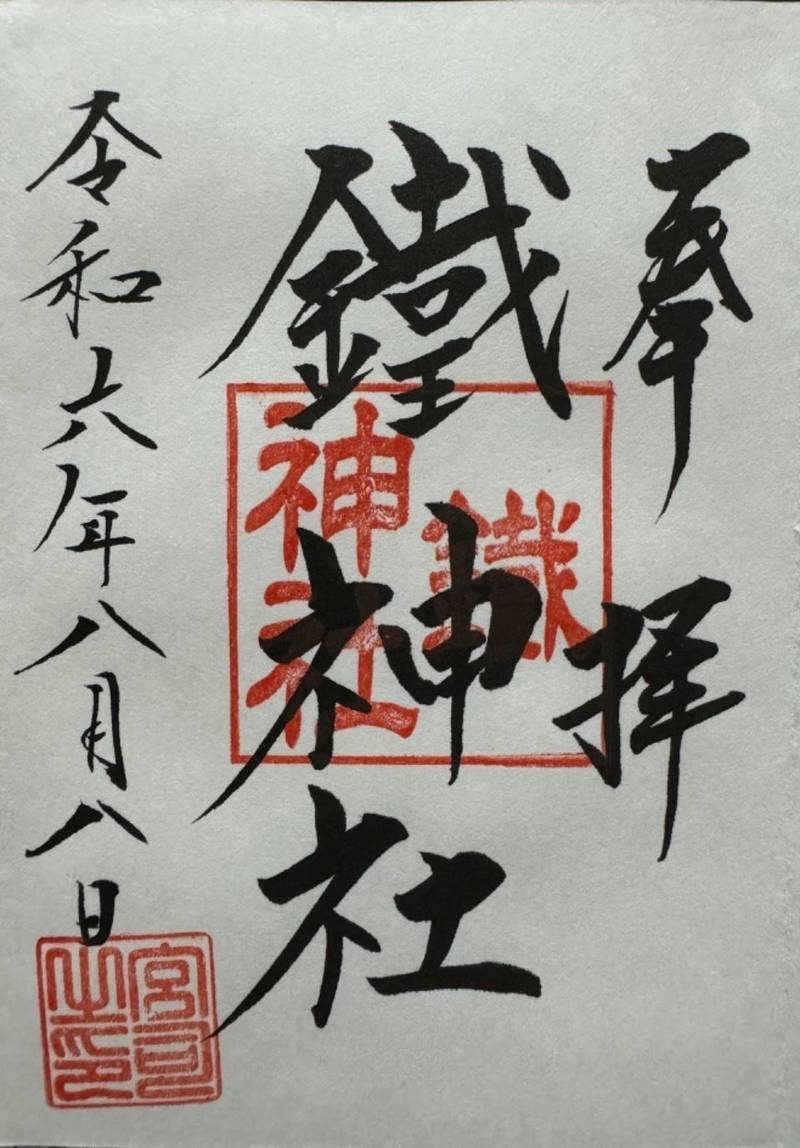 奉拝
鐵神社
鐵
神社
令和六年八月八日
宮司
之印